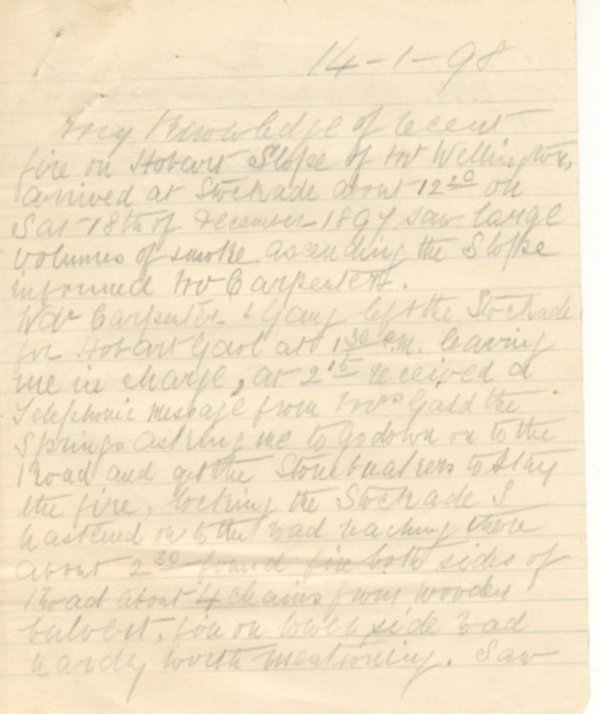 14-1-98
My Knowledge of recent
fire on Hobart Slope of Mt Wellington,
arrived at Stockade about 12 20 on
Sat 18th of December 1897 saw large
volumes of smoke ascending the Slope
informed Carpenter.
Wdr Carpenter & Gang left the Stockade
for Hobart Gaol at 1 30 P.M. leaving
me in charge, at 2 15 received a
Telephonic message from Mrs Gadd the
Springs asking me to go down on to the
Road and get the Stonebreakers to stay
the fire, locking the Stockade I
hastened on to the road reaching there
about 2 30 found fire both sides of
Road about 4 chains from wooden
culvert, fire on lower side road
hardly worth mentioning. Saw